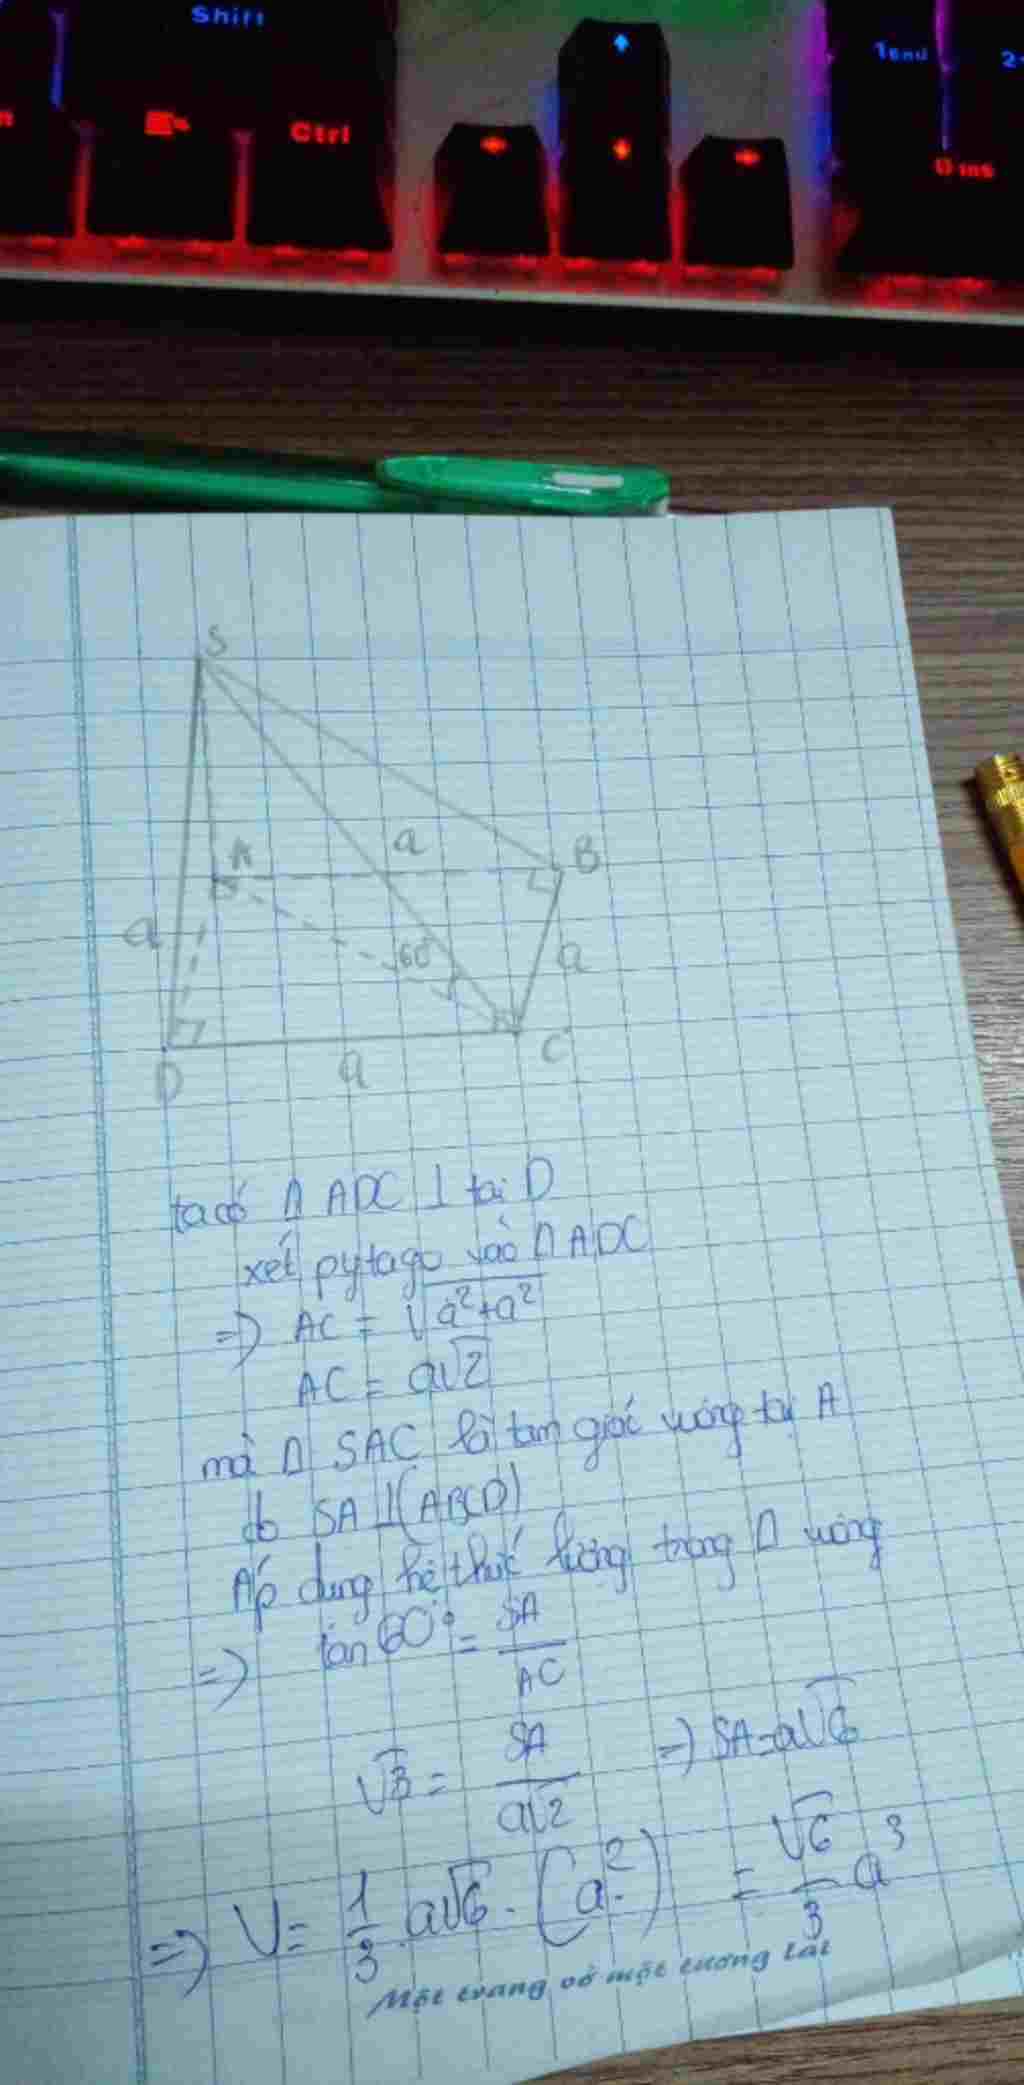 Shift
1 End
2
n
Ctrl
0 ins
S
A
a
B
a
60°
a
D
a
C
ta có Δ ADC ⊥ tại D
xét pytago vào Δ ADC
=> AC = √a²+a²
AC = a√2
mà Δ SAC là tam giác vuông tại A
do SA ⊥ (ABCD)
Áp dụng hệ thức lượng trong Δ vuông
=> tan 60° = SA/AC
√3 = SA/a√2 => SA = a√6
=> V = 1/3 . a√6 . (a²) = √6/3 a³
Một trang vở một tương lai